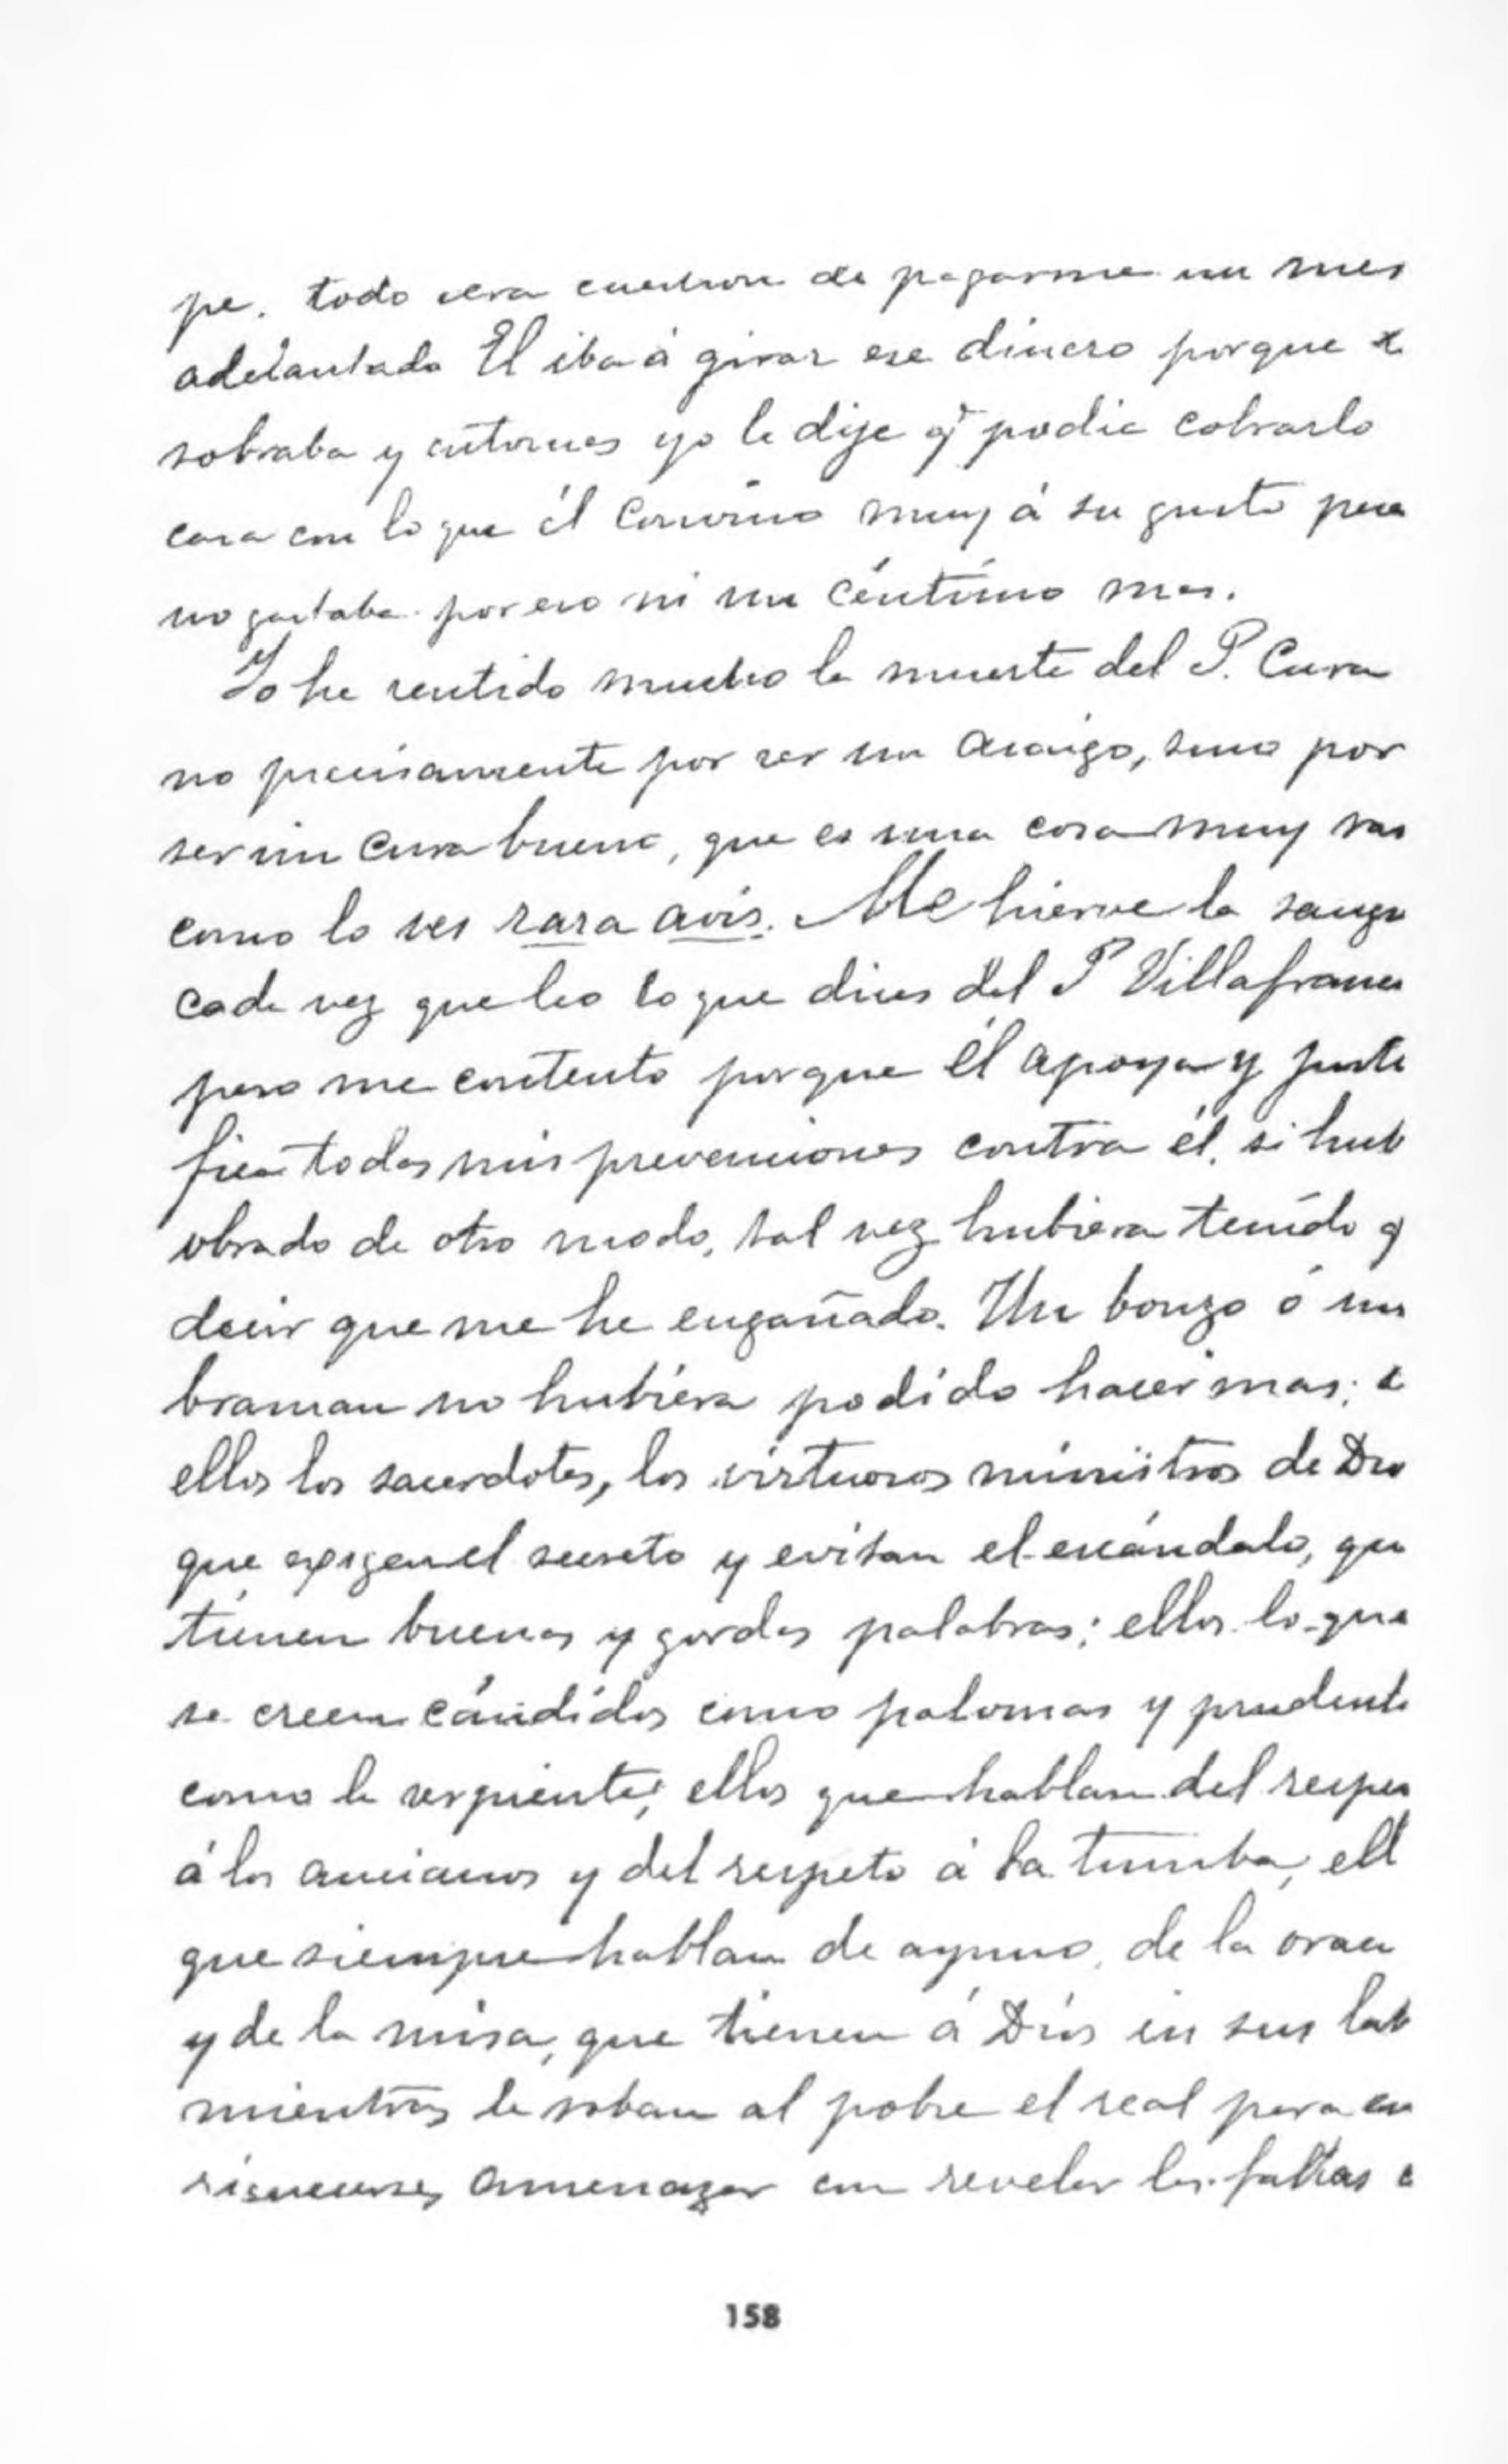 pe. todo sera cuestion de pagarme un mes
adelantado El iba á girar ese dinero porque
sobraba y entonces yo le dije q̃ podia cobrarlo
casa con lo que él convino muy á su gusto pues
no gastaba por eso ni un céntimo mas.
Yo he sentido mucho la muerte del P. Cura
no precisamente por ser un amigo, sino por
ser un cura bueno, que es una cosa muy rar
como lo ves rara avis. Me hierve la sangr
cada vez que leo lo que dices del P Villafranca
pero me contento porque él apoya y justi
fica todas mis prevenciones contra él. si hub
obrado de otro modo, tal vez hubiera tenido q
decir que me he engañado. Un bonzo ó un
braman no hubiera podido hacer mas;
ellos los sacerdotes, los virtuosos ministros de Dio
que exigen el secreto y evitan el escándalo, que
tienen buenas y gordas palabras; ellos lo que
se creen cándidos como palomas y prudente
como la serpiente; ellos que hablan del respe
á los ancianos y del respeto á la tumba, ell
que siempre hablan de ayuno, de la orac
y de la misa, que tienen á Dios en sus lab
mientras le roban al pobre el real para en
riquecerse, amenazar con revelar las faltas
158